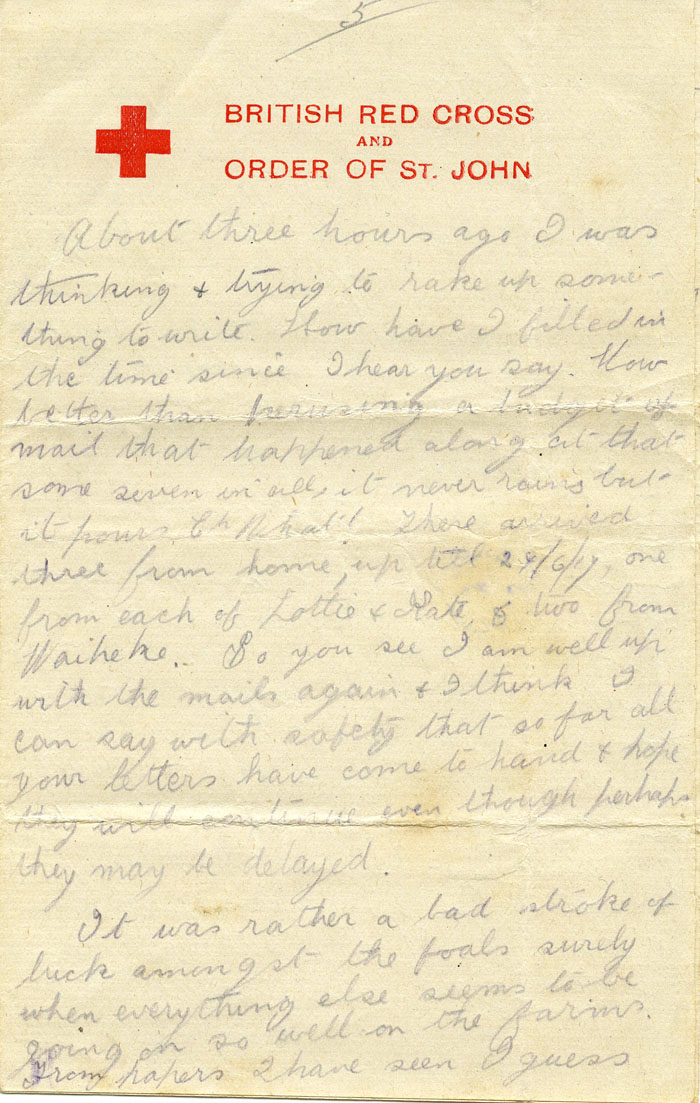 5
BRITISH RED CROSS
AND
ORDER OF ST. JOHN
About three hours ago I was
thinking & trying to rake up some-
thing to write. How have I filled in
the time since I hear you say. How
better than perusing a budget of
mail that happened along at that
some seven in all, it never rains but
it pours Eh What! There arrived
three from home, up till 29/6/17, one
from each of Lottie & Kate, & two from
Waiheke. So you see I am well up
with the mails again & I think I
can say with safety that so far all
your letters have come to hand & hope
they will continue even though perhaps
they may be delayed.
It was rather a bad stroke of
luck amongst the foals surely
when everything else seems to be
going on so well on the farms.
From papers I have seen I guess